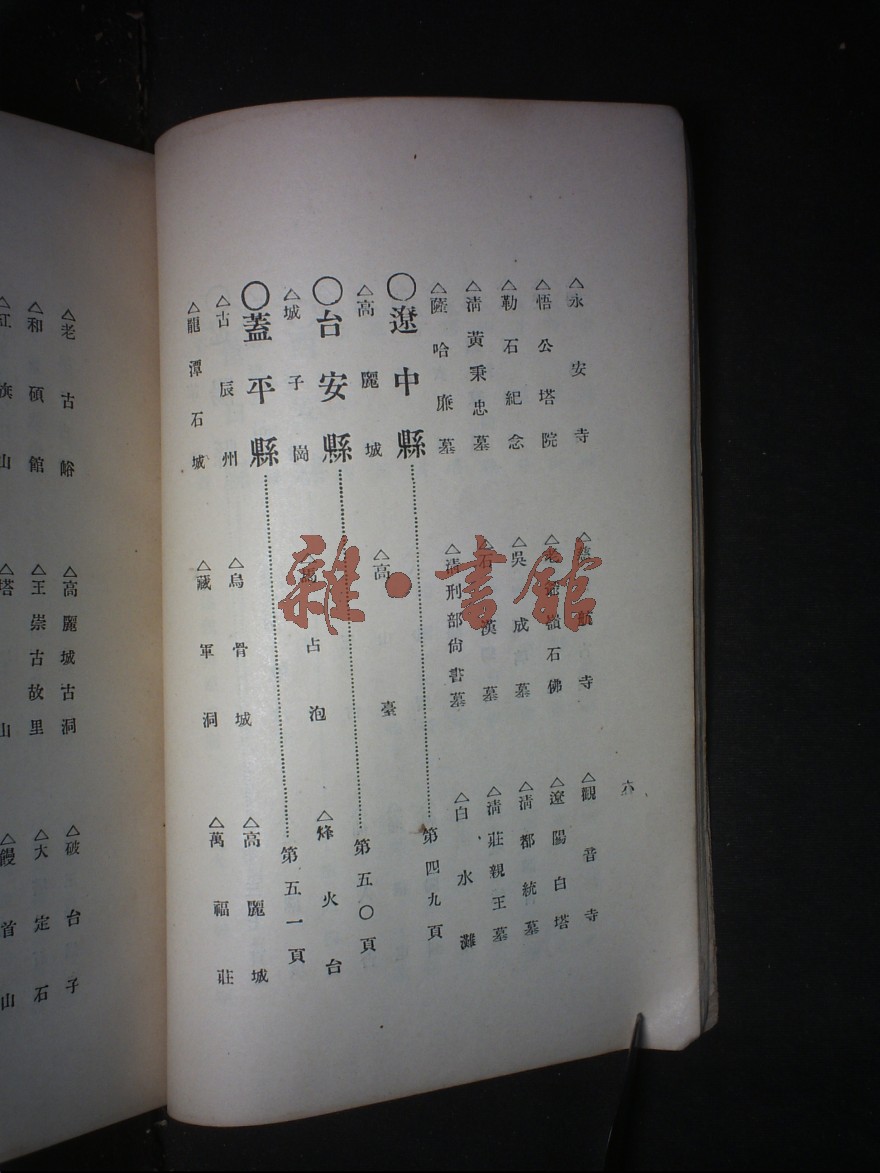 △永安寺 △慈航寺 △觀音寺
△悟公塔院 石佛 △遼陽白塔
△勒石紀念 △吳成墓 △淸都統墓
△淸黃秉忠墓 △石漢墓 △淸莊親王墓
△薩哈廉墓 △淸刑部尙書墓 △白水灘
○遼中縣 第四九頁
△高麗城 △高臺
○台安縣 第五〇頁
△城子崗 占泡 △烽火台
○蓋平縣 第五一頁
△古辰州 △烏骨城 △高麗城
△龍潭石城 △藏軍洞 △萬福莊
六
△老古峪 △高麗城古洞 △破台子
△和碩館 △王崇古故里 △大定石
△紅旗山 △塔山 △饅首山
雜·書館